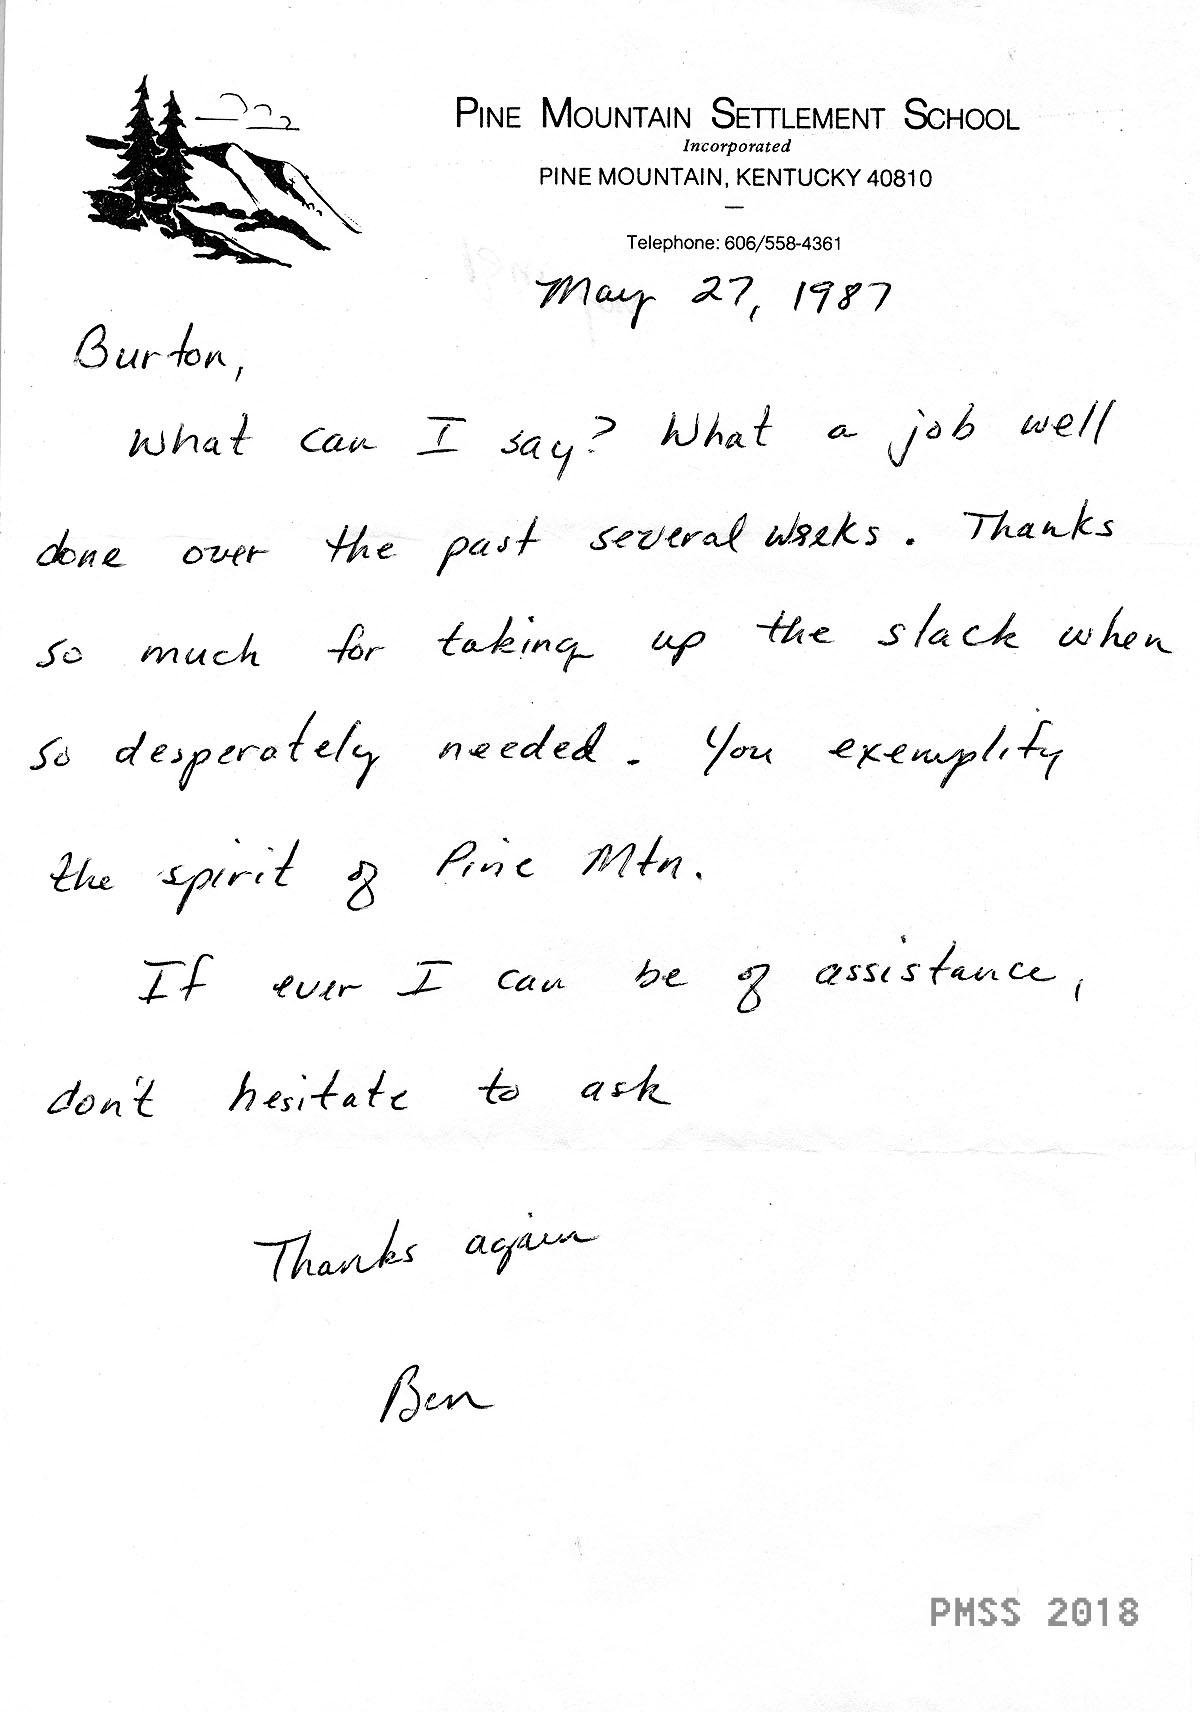 PINE MOUNTAIN SETTLEMENT SCHOOL
Incorporated
PINE MOUNTAIN, KENTUCKY 40810
—
Telephone: 606/558-4361
May 27, 1987
Burton,
What can I say? What a job well
done over the past several weeks. Thanks
so much for taking up the slack when
so desperately needed. You exemplify
the spirit of Pine Mtn.
If ever I can be of assistance,
don't hesitate to ask
Thanks again
Ben
PMSS 2018